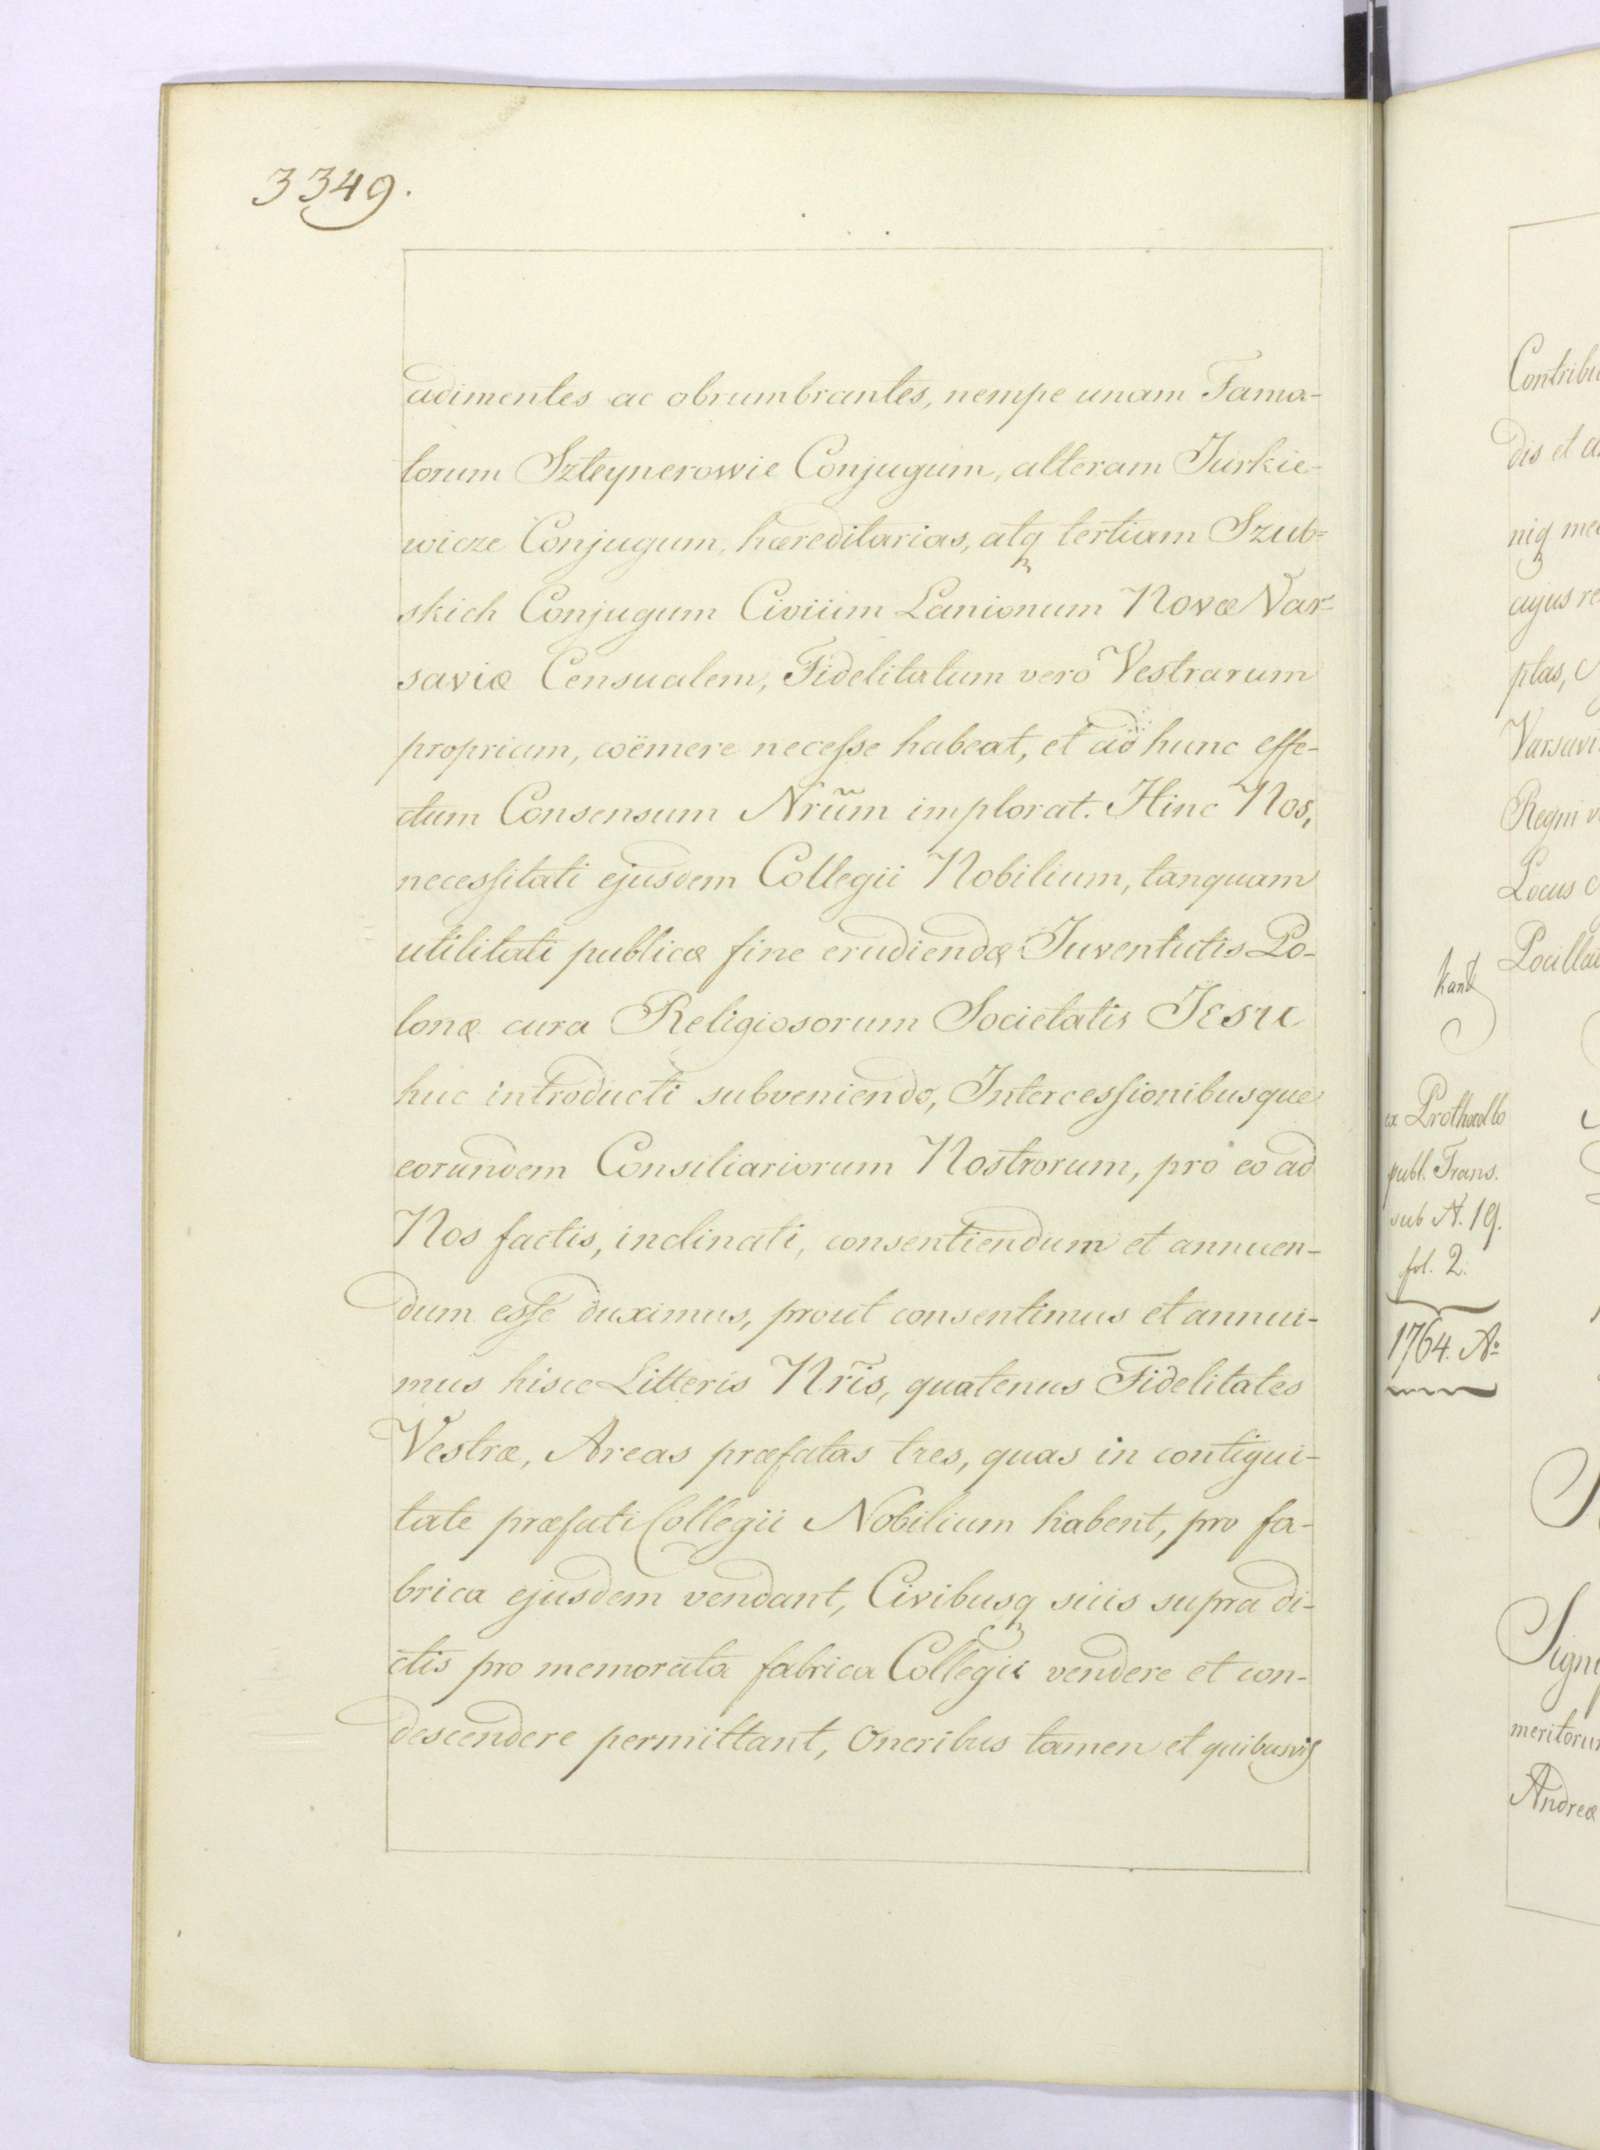 3349.
adimentes ac obrumbrantes, nempe unam Fama-
torum Szteynerowie Conjugum, alteram Jurkie-
wicze Conjugum, hæreditarias, atq tertiam Szub=
skich Conjugum Civiũm Lanionum Novæ Var-
saviæ Censualem, Fidelitatum vero Vestrarum
propriam, coëmere necesse habeat, et ad hunc effe-
ctum Consensum Nrũm implorat. Hinc Nos,
necessitati ejusdem Collegii Nobilium, tanquam
utilitati publicæ fine erudiendæ Juventutis Po-
lonæ cura Religiosorum Societatis JESU
huc introducti subveniendo, Intercessionibusque
eorundem Consiliariorum Nostrorum, pro eo ad
Nos factis, inclinati, consentiendum et annuen-
dum esse duximus, prout consentimus et annui-
mus hisce Litteris Nrĩs, quatenus Fidelitates
Vestræ, Areas præfatas tres, quas in contigui-
tate præfati Collegii Nobilium habent, pro fa-
brica ejusdem vendant, Civibusq suis supra di-
ctis pro memorata fabrica Collegii vendere et con-
descendere permittant, Oneribus tamen et quibusvis
Contribu
dis et a
niq me
cujus re
ptas,
Varsavi
Regni v
Locus
Pocilla
ex Prothocollo
publ. Trans.
sub N. 19.
fol. 2.
1764. Aº
Sign
meritoru
Andreæ